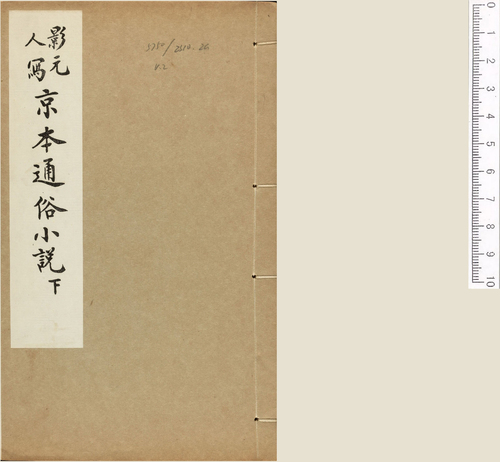 影元
人寫京本通俗小說下
0 1 2 3 4 5 6 7 8 9 10